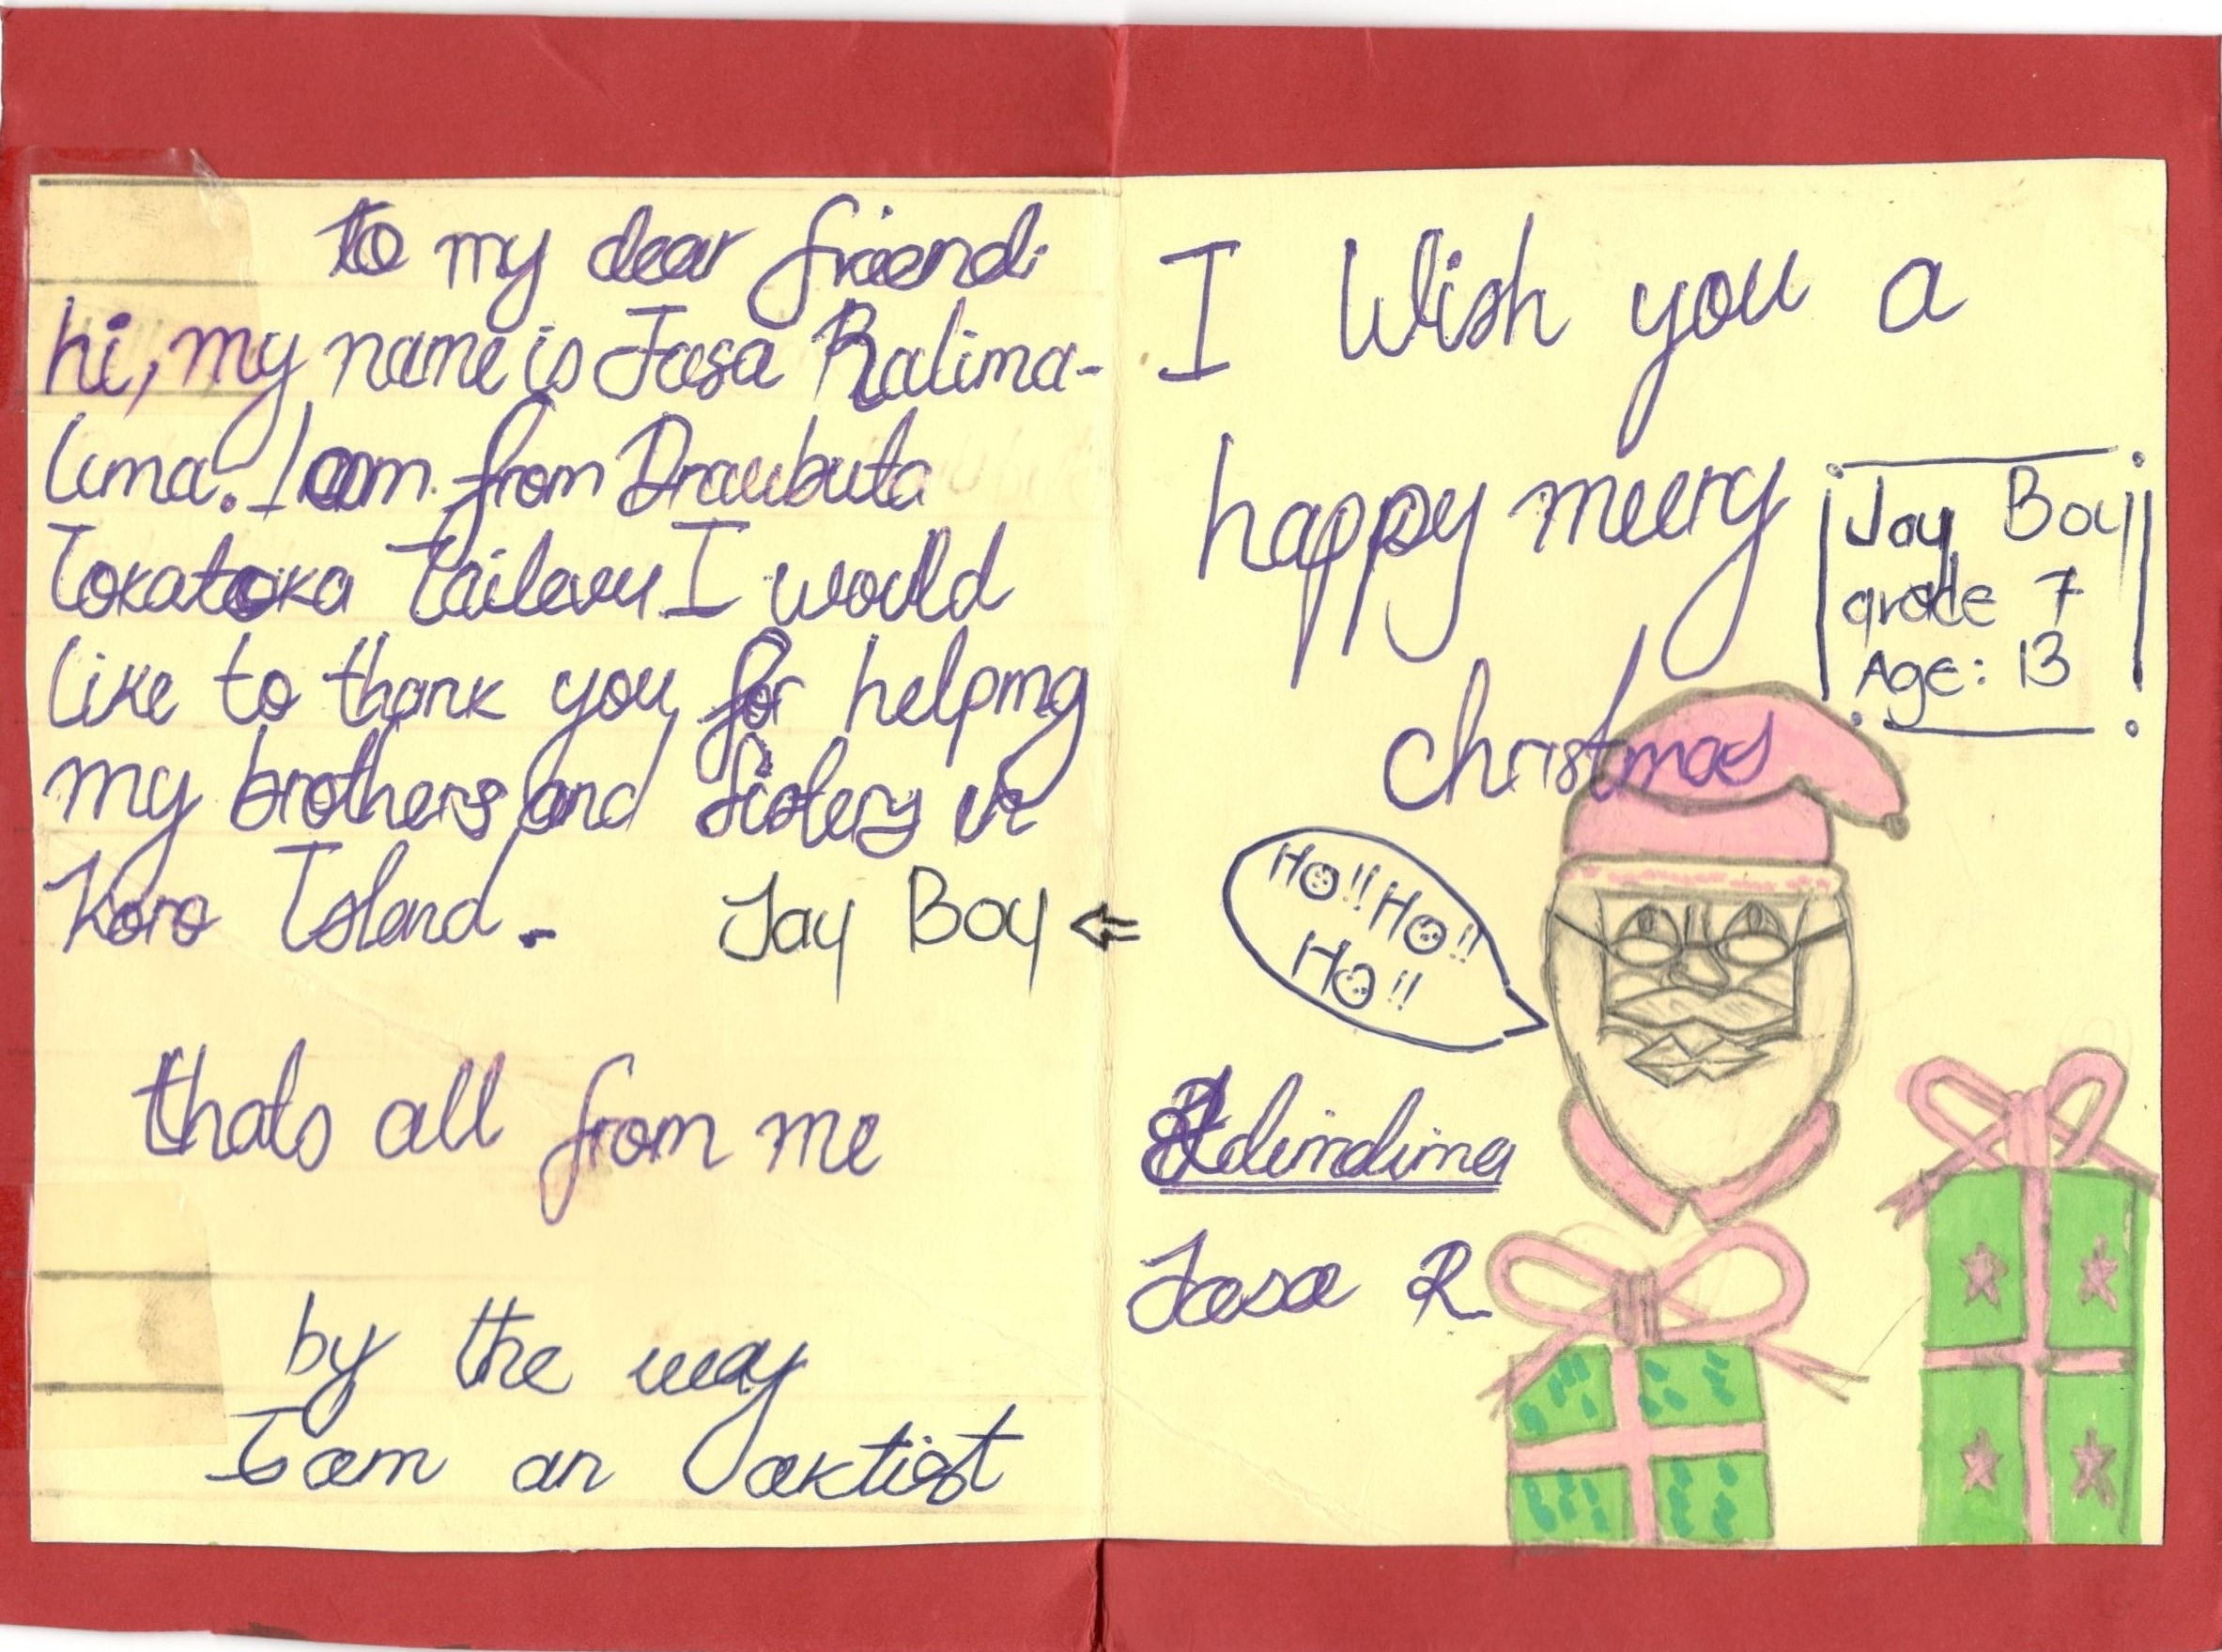 to my dear friend.
hi, my name is Jasa Ralima-
lima. I am from Draubuta
Tokatoka Tailevu I would
like to thank you for helping
my brothers and sisters in
Koro Island.
Jay Boy
thats all from me
by the way
I am an aktist
I Wish you a
happy meery
christmas
Jay Boy
grade 7
Age: 13
HO!! HO!!
HO!!
Jasa R